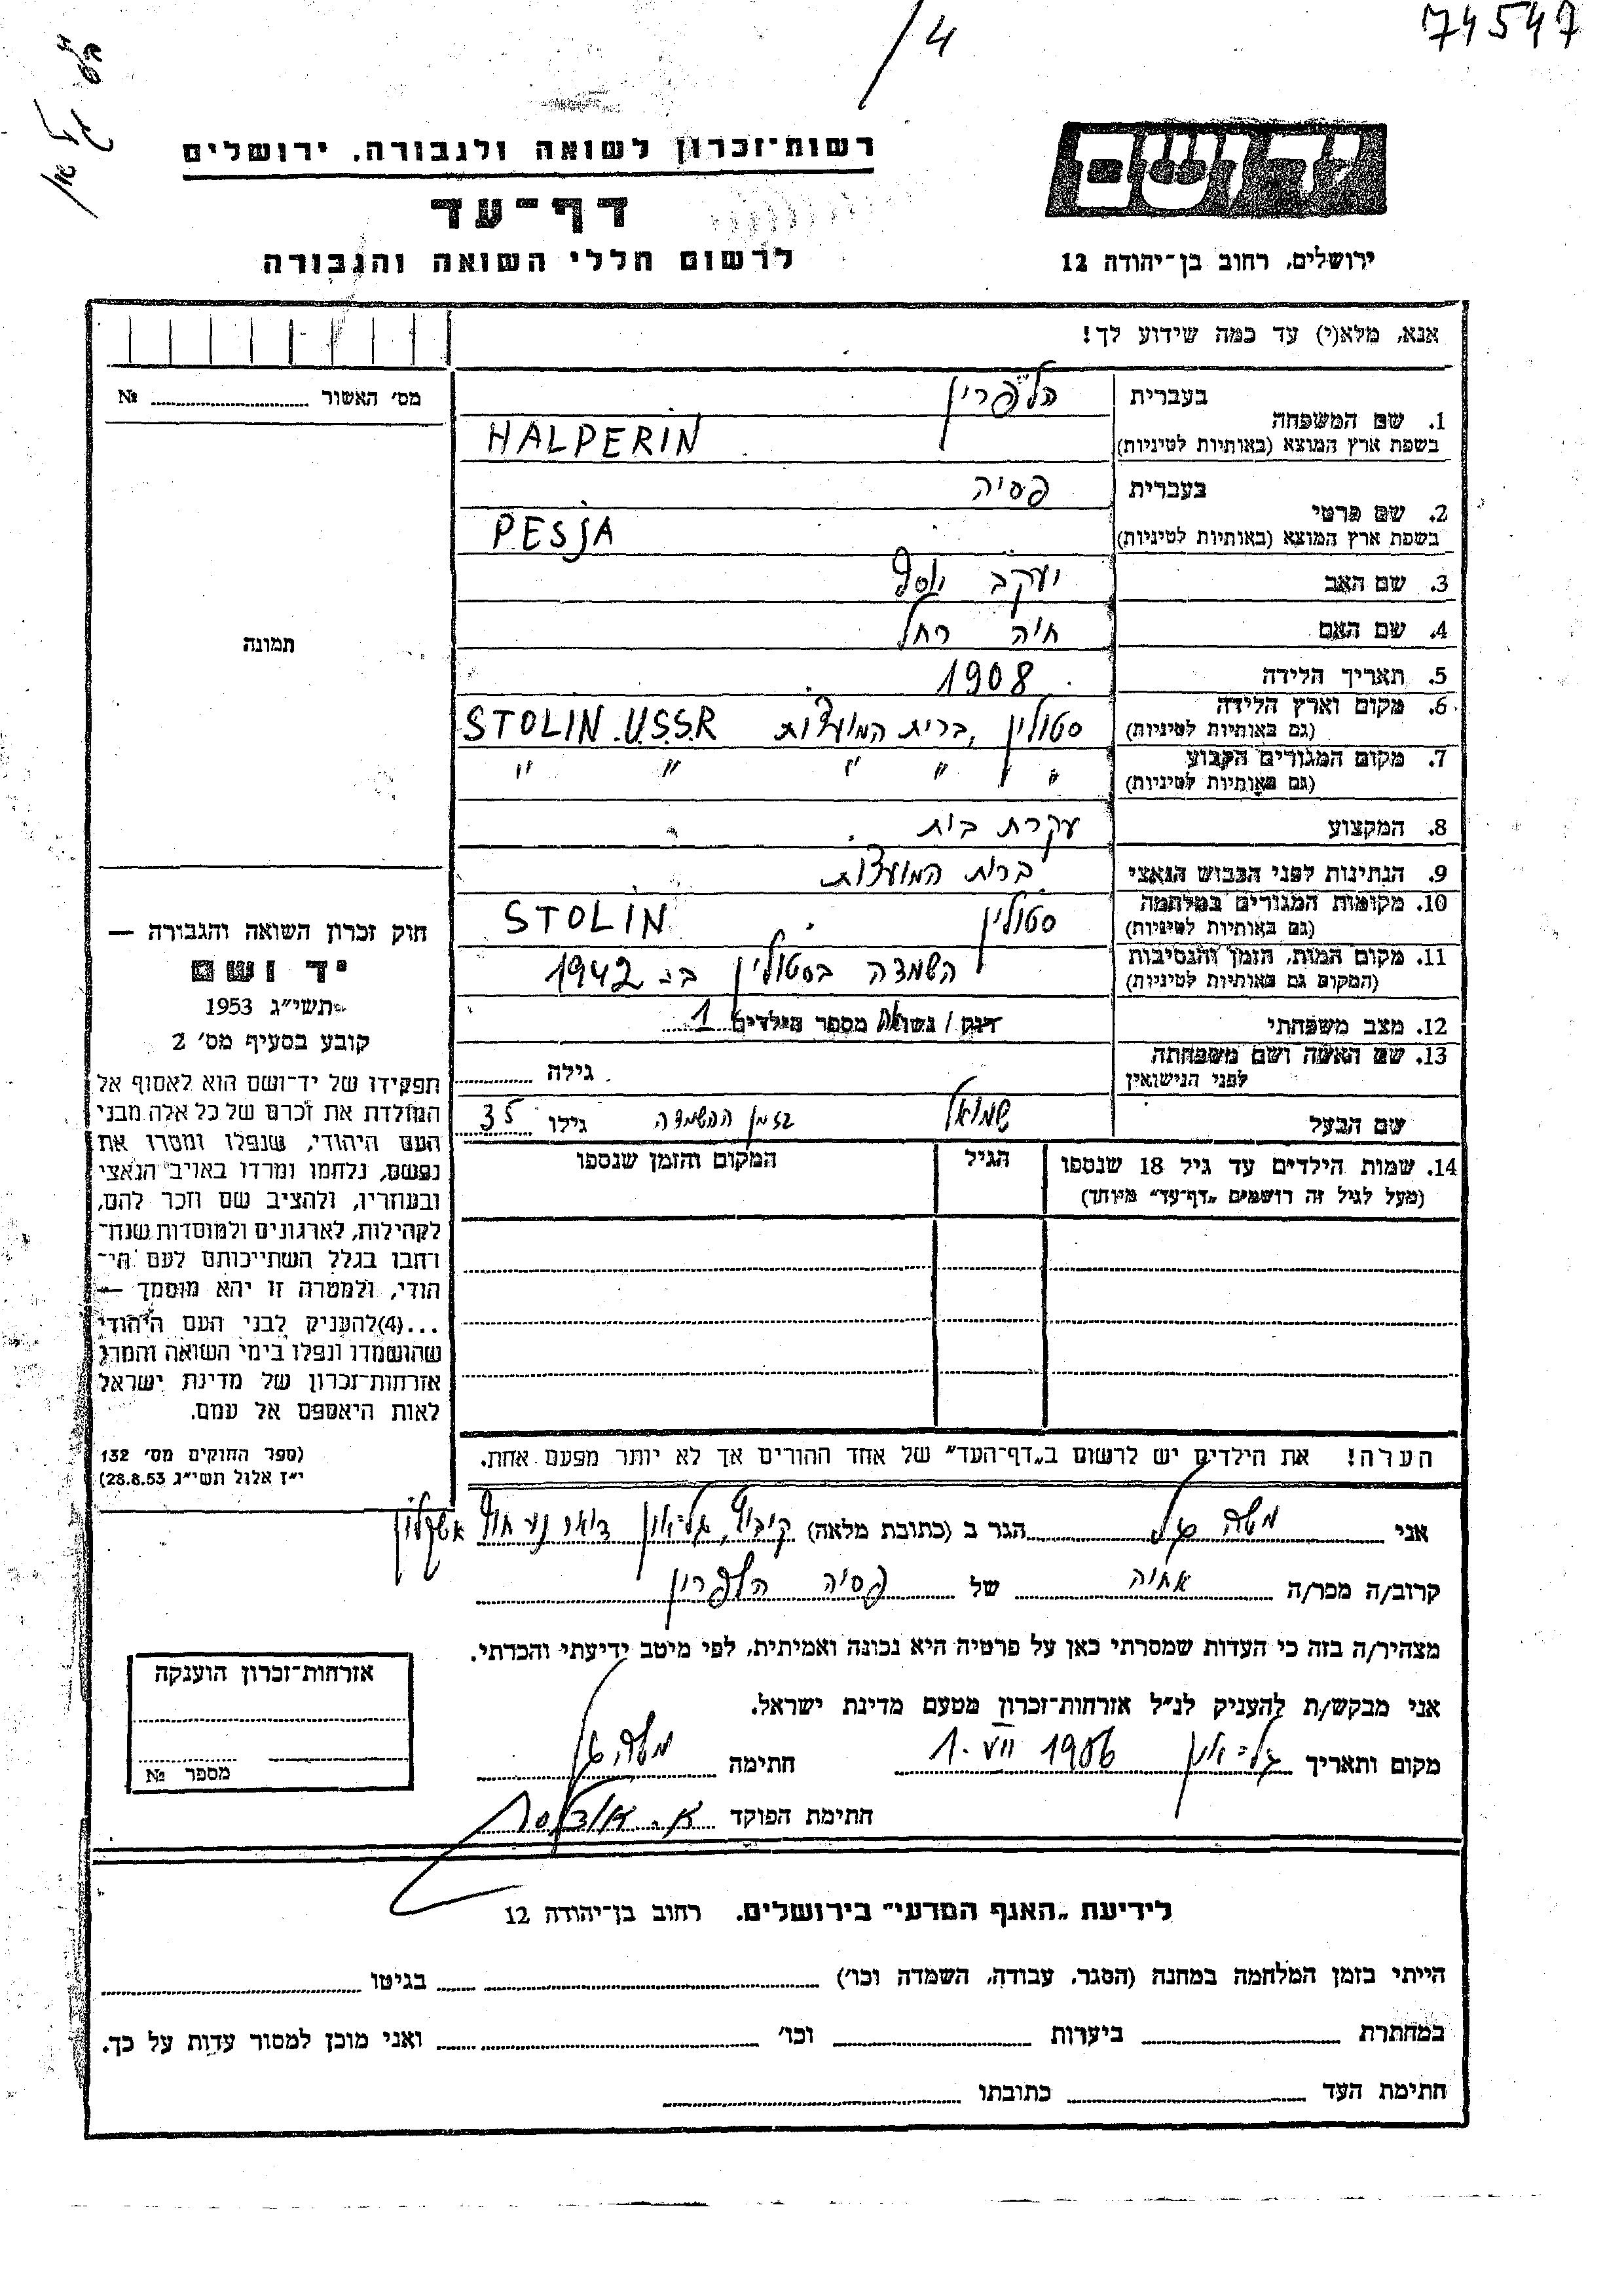 74547
/4
רשות־זכרון לשואה ולגבורה. ירושלים
דף־עד
לרשום חללי השואה והגבורה
יד ושם
ירושלים, רחוב בן־יהודה 12
אנא, מלא(י) עד כמה שידוע לך!
מס׳ האשור ........ №
1. שם המשפחה
בעברית הלפרין
בשפת ארץ המוצא (באותיות לטיניות) HALPERIN
2. שם פרטי
בעברית פסיה
בשפת ארץ המוצא (באותיות לטיניות) PESJA
3. שם האב יעקב יוסף
4. שם האם חיה רחל
5. תאריך הלידה 1908
6. מקום וארץ הלידה (גם באותיות לטיניות) סטולין, ברית המועצות STOLIN U.S.S.R
7. מקום המגורים הקבוע (גם באותיות לטיניות) " " " " " "
8. המקצוע עקרת בית
9. הנתינות לפני הכבוש הנאצי ברית המועצות
10. מקומות המגורים במלחמה (גם באותיות לטיניות) סטולין STOLIN
11. מקום המות, הזמן והנסיבות (המקום גם באותיות לטיניות) השמדה בסטולין ב־ 1942
12. מצב משפחתי רווק / נשואה מספר הילדים 1
13. שם האשה ושם משפחתה לפני הנישואין גילה
שם הבעל שמואל בזמן ההשמדה גילו 35
14. שמות הילדים עד גיל 18 שנספו
(מעל לגיל זה רושמים „דף־עד” מיוחד)
הגיל
המקום והזמן שנספו
הערה! את הילדים יש לרשום ב„דף־העד” של אחד ההורים אך לא יותר מפעם אחת.
תמונה
חוק זכרון השואה והגבורה —
יד ושם
תשי״ג 1953
קובע בסעיף מס׳ 2
תפקידו של יד־ושם הוא לאסוף אל
המולדת את זכרם של כל אלה מבני
העם היהודי, שנפלו ומסרו את
נפשם, נלחמו ומרדו באויב הנאצי
ובעוזריו, ולהציב שם וזכר להם,
לקהילות, לארגונים ולמוסדות שנח־
רחבו בגלל השתייכותם לעם הי־
הודי, ולמטרה זו יהא מוסמך —
...(4)להעניק לבני העם היהודי
שהושמדו ונפלו בימי השואה והמרי
אזרחות־זכרון של מדינת ישראל
לאות היאספם אל עמם.
(ספר החוקים מס׳ 132
י״ז אלול תשי״ג 28.8.53)
אני משה גל הגר ב (כתובת מלאה) קיבוץ גל־און דואר נע חוף אשקלון
קרוב/ה מכר/ה אחיה של פסיה הלפרין
מצהיר/ה בזה כי העדות שמסרתי כאן על פרטיה היא נכונה ואמיתית, לפי מיטב ידיעתי והכרתי.
אני מבקש/ת להעניק לנ״ל אזרחות־זכרון מטעם מדינת ישראל.
מקום ותאריך גל־און 1. VII 1956 חתימה משה גל
חתימת הפוקד
אזרחות־זכרון הוענקה
מספר №
לידיעת „האגף המדעי” בירושלים. רחוב בן־יהודה 12
הייתי בזמן המלחמה במחנה (הסגר, עבודה, השמדה וכו׳) ........ בגיטו ........
במחתרת ........ ביערות ........ וכו׳ ........ ואני מוכן למסור עדות על כך.
חתימת העד ........ כתובתו ........